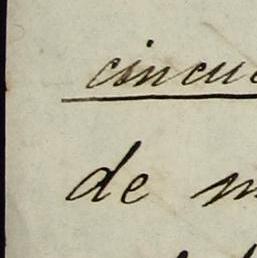 cincu
de m